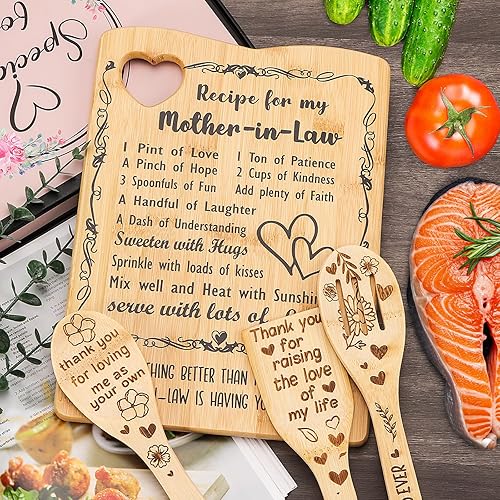 Special
Recipe for my
Mother-in-Law
1 Pint of Love
1 Ton of Patience
A Pinch of Hope
2 Cups of Kindness
3 Spoonfuls of Fun
Add plenty of Faith
A Handful of Laughter
A Dash of Understanding
Sweeten with Hugs
Sprinkle with loads of kisses
Mix well and Heat with Sunshin
serve with lots of
THING BETTER THAN
-LAW IS HAVING YO
thank you
for loving
me as
your own
Thank you
for
raising
the love
of
my life
EVER